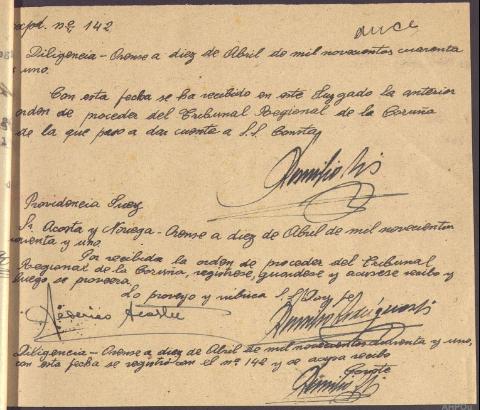 expd. nº 142
once
Diligencia - Orense a diez de Abril de mil novecientos cuarenta
y uno.
Con esta fecha se ha recibido en este Juzgado la anterior
orden de proceder del Tribunal Regional de la Coruña
de la que paso a dar cuenta a S.S. Consta
Providencia Juez
Sr Acosta y Noriega - Orense a diez de Abril de mil novecientos
cuarenta y uno.
Por recibida la orden de proceder del Tribunal
Regional de la Coruña, registrese, guardese y acusese recibo y
luego se proveerá.
Lo proveyo y rubrica S.S. Doy fe
Federico Acosta
Diligencia - Orense a diez de Abril de mil novecientos cuarenta y uno,
con esta fecha se registró con el nº 142 y se acusa recibo
Conste